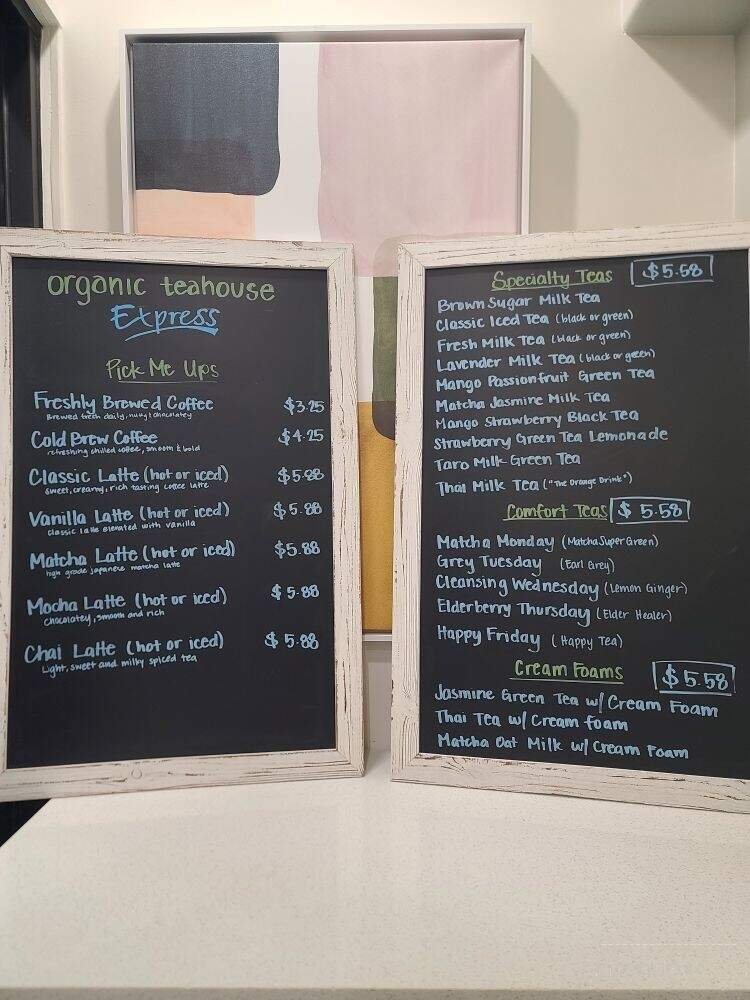 organic teahouse
Express
Pick Me Ups
Freshly Brewed Coffee $3.25
Brewed fresh daily, nutty & chocolatey
Cold Brew Coffee $4.25
refreshing chilled coffee, smooth & bold
Classic Latte (hot or iced) $5.88
sweet, creamy, rich tasting coffee latte
Vanilla Latte (hot or iced) $5.88
classic latte elevated with vanilla
Matcha Latte (hot or iced) $5.88
high grade japanese matcha latte
Mocha Latte (hot or iced) $5.88
chocolatey, smooth and rich
Chai Latte (hot or iced) $5.88
Light, sweet and milky spiced tea
Specialty Teas $5.58
Brown Sugar Milk Tea
Classic Iced Tea (black or green)
Fresh Milk Tea (black or green)
Lavender Milk Tea (black or green)
Mango Passionfruit Green Tea
Matcha Jasmine Milk Tea
Mango Strawberry Black Tea
Strawberry Green Tea Lemonade
Taro Milk Green Tea
Thai Milk Tea ("The Orange Drink")
Comfort Teas $5.58
Matcha Monday (Matcha Super Green)
Grey Tuesday (Earl Grey)
Cleansing Wednesday (Lemon Ginger)
Elderberry Thursday (Elder Healer)
Happy Friday (Happy Tea)
Cream Foams $5.58
Jasmine Green Tea w/ Cream Foam
Thai Tea w/ Cream foam
Matcha Oat Milk w/ Cream Foam